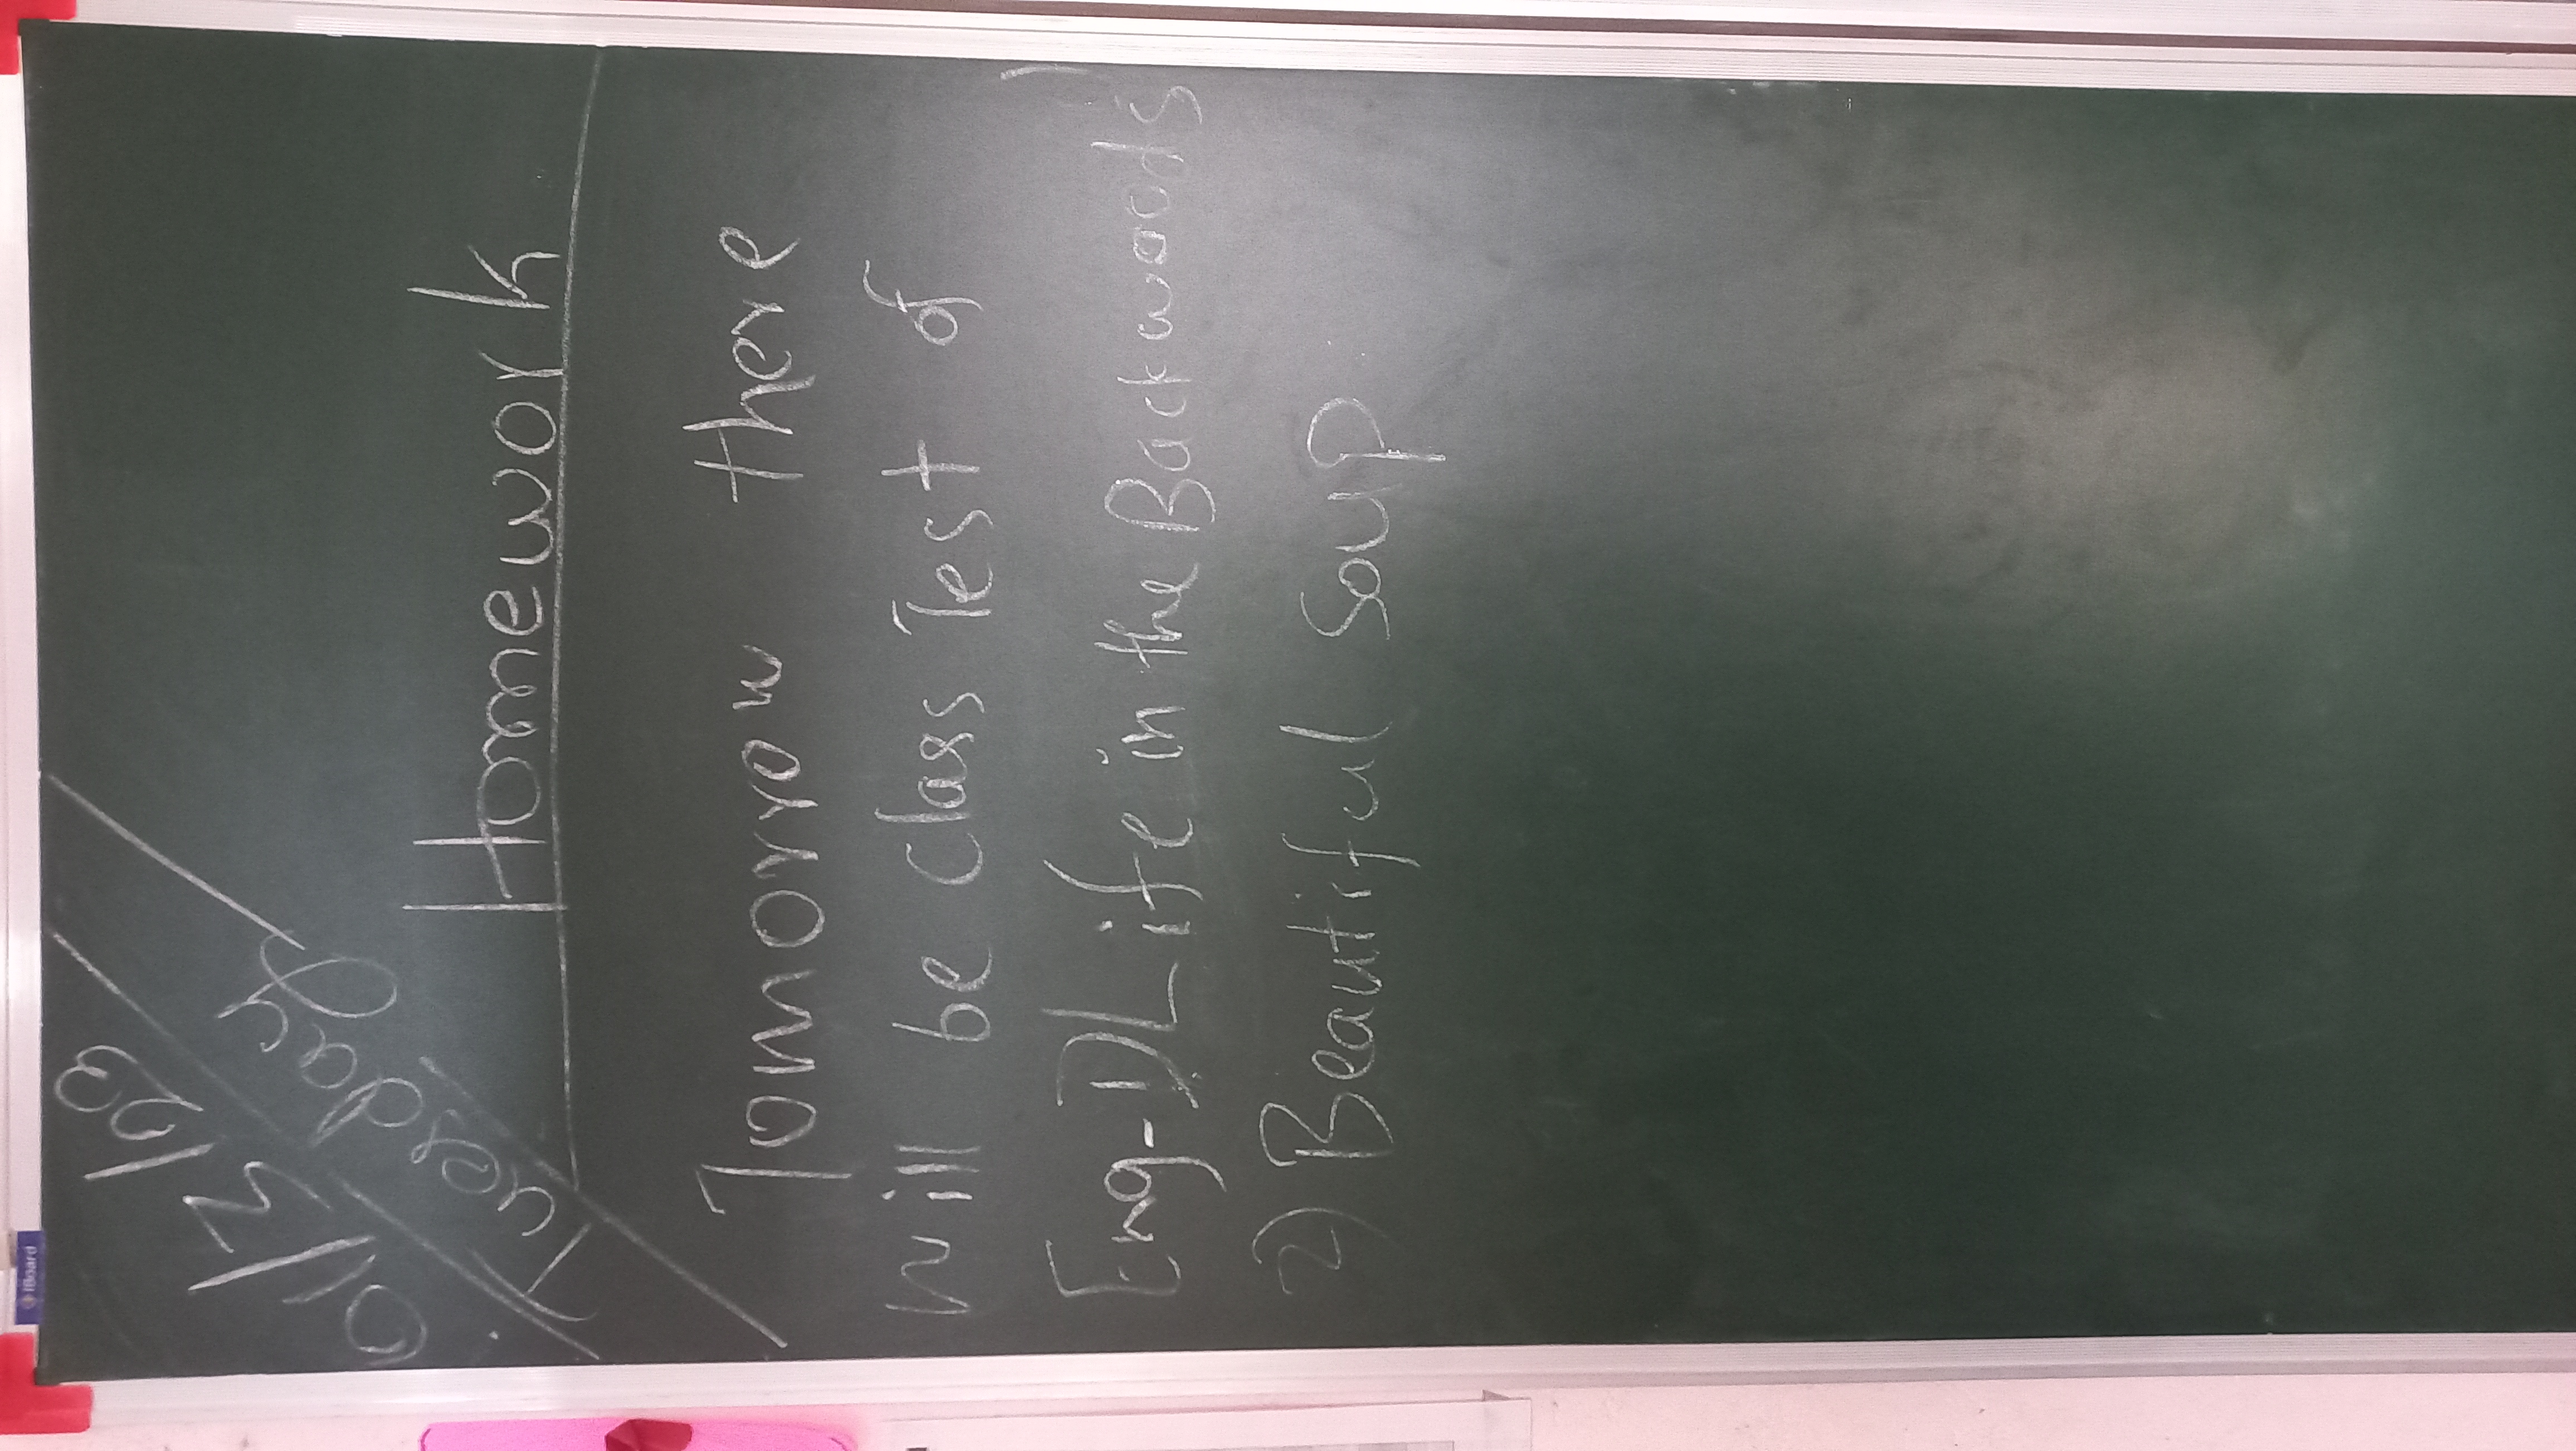 01/3/23
Tuesday
Homework
Tomorrow there
will be Class Test of
Eng-1) Life in the Backwoods
2) Beautiful Soup